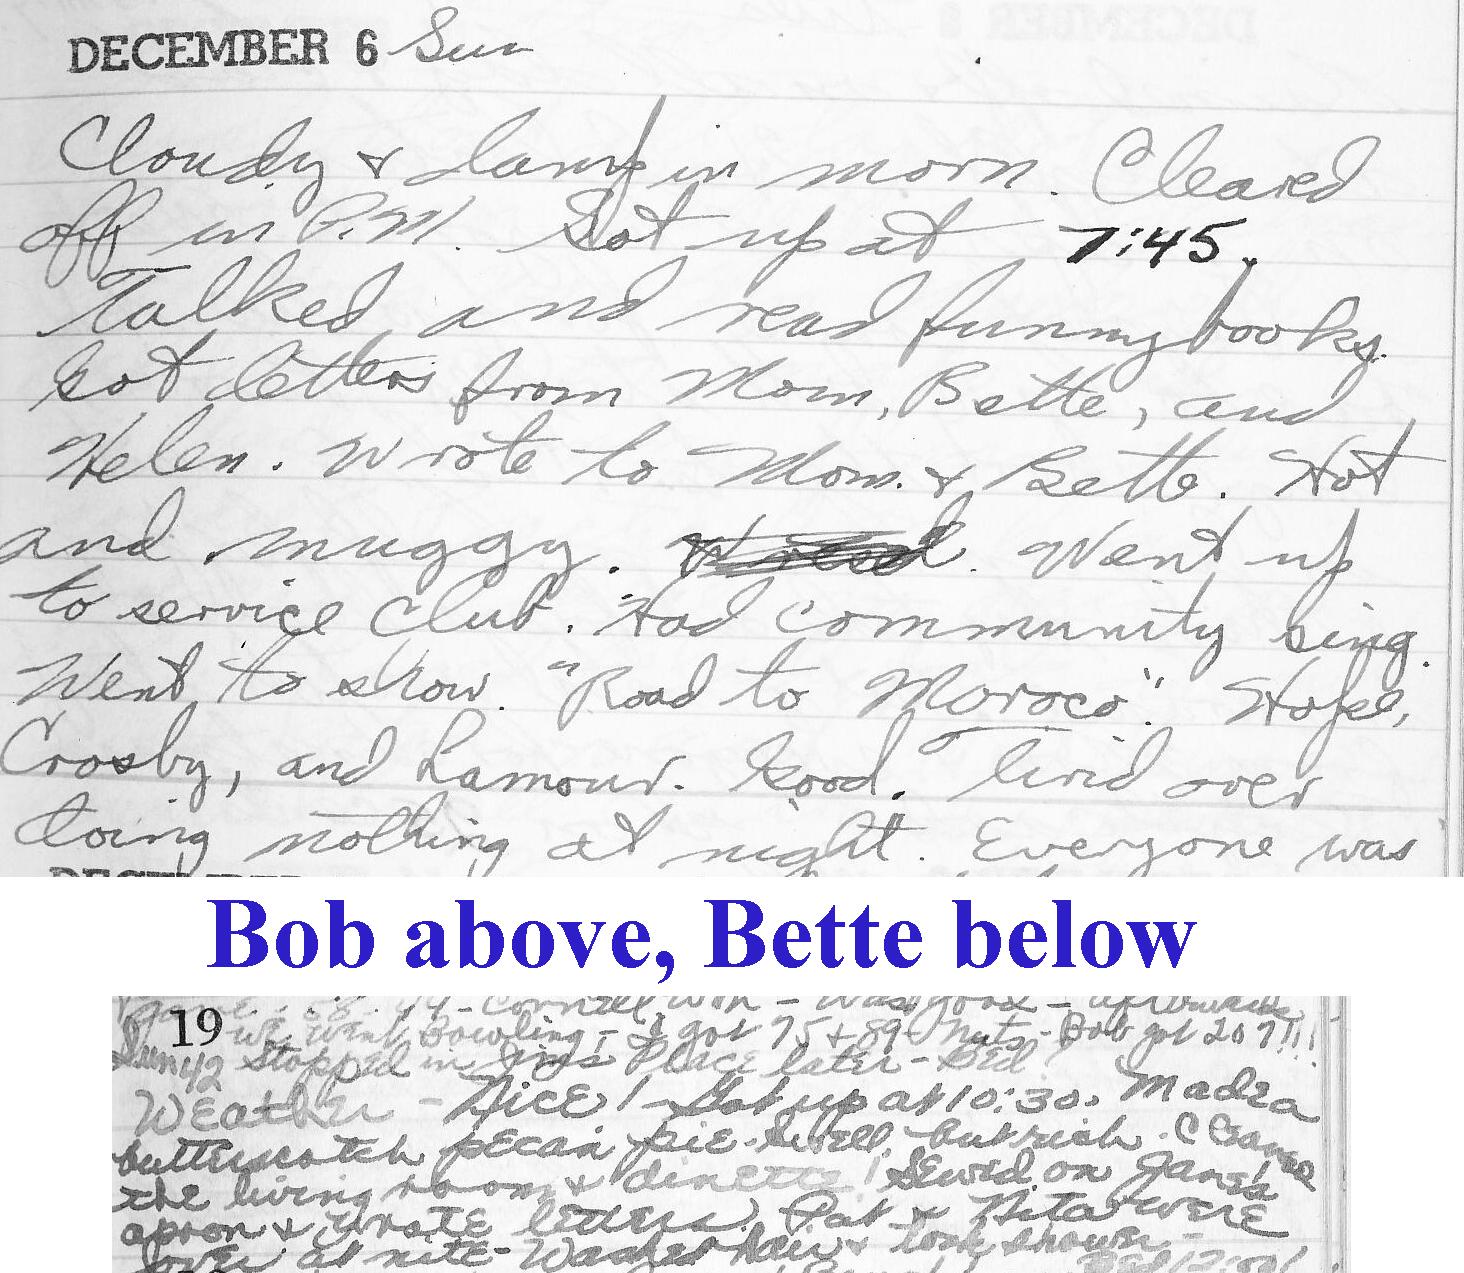 DECEMBER 6 Sun
Cloudy & damp in morn. Cleared
off in P.M. Got up at 7:45.
Talked and read funny books.
Got letters from Mom, Bette, and
Helen. Wrote to Mom. & Bette. Hot
and muggy. Went up
to service club. Had community sing.
Went to show. "Road to Moroco". Hope,
Crosby, and Lamour. Good. Tired over
doing nothing at night. Everyone was
Bob above, Bette below
Game - 58-44 - Cornell won - Was good - afterwards
19 we went Bowling - I got 75 + 89 - Nuts - Bob got 207!!!
Sun 42 Stopped in Jims Place later - Bed
Weather - Nice! - Got up at 10:30. Made a
butterscotch pecan pie. Swell, but rich. Cleaned
the living room & dinette! Sewed on Jane's
apron & wrote letters. Pat & Nita were
over at nite - Washed hair & took shower -
Bed 12:00!